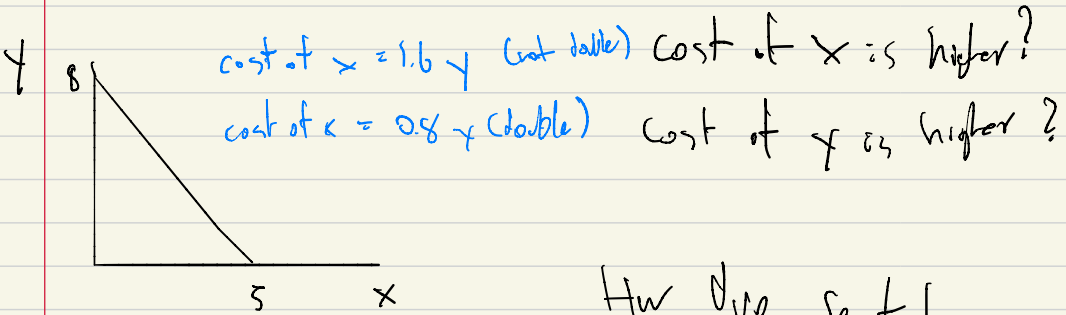 cost of x = 1.6 y (not double) cost of x is higher?
Y 8
cost of x = 0.8 y (double) cost of y is higher?
5 x
HW due